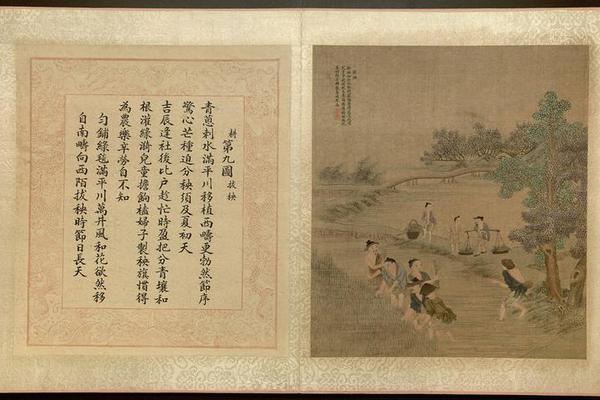 耕 第九圖 拔秧
青蔥刺水滿平川移植西疇更勃然節序
驚心芒種迫分秧須及夏初天
吉辰逢社後比戶趁忙時盈把分青壤和
根灌綠漪兒童擔餉榼婦子製秧旗慣得
為農樂辛勞自不知
勻鋪綠毯滿平川萬井風和花欲然移
自南疇向西陌拔秧時節日長天